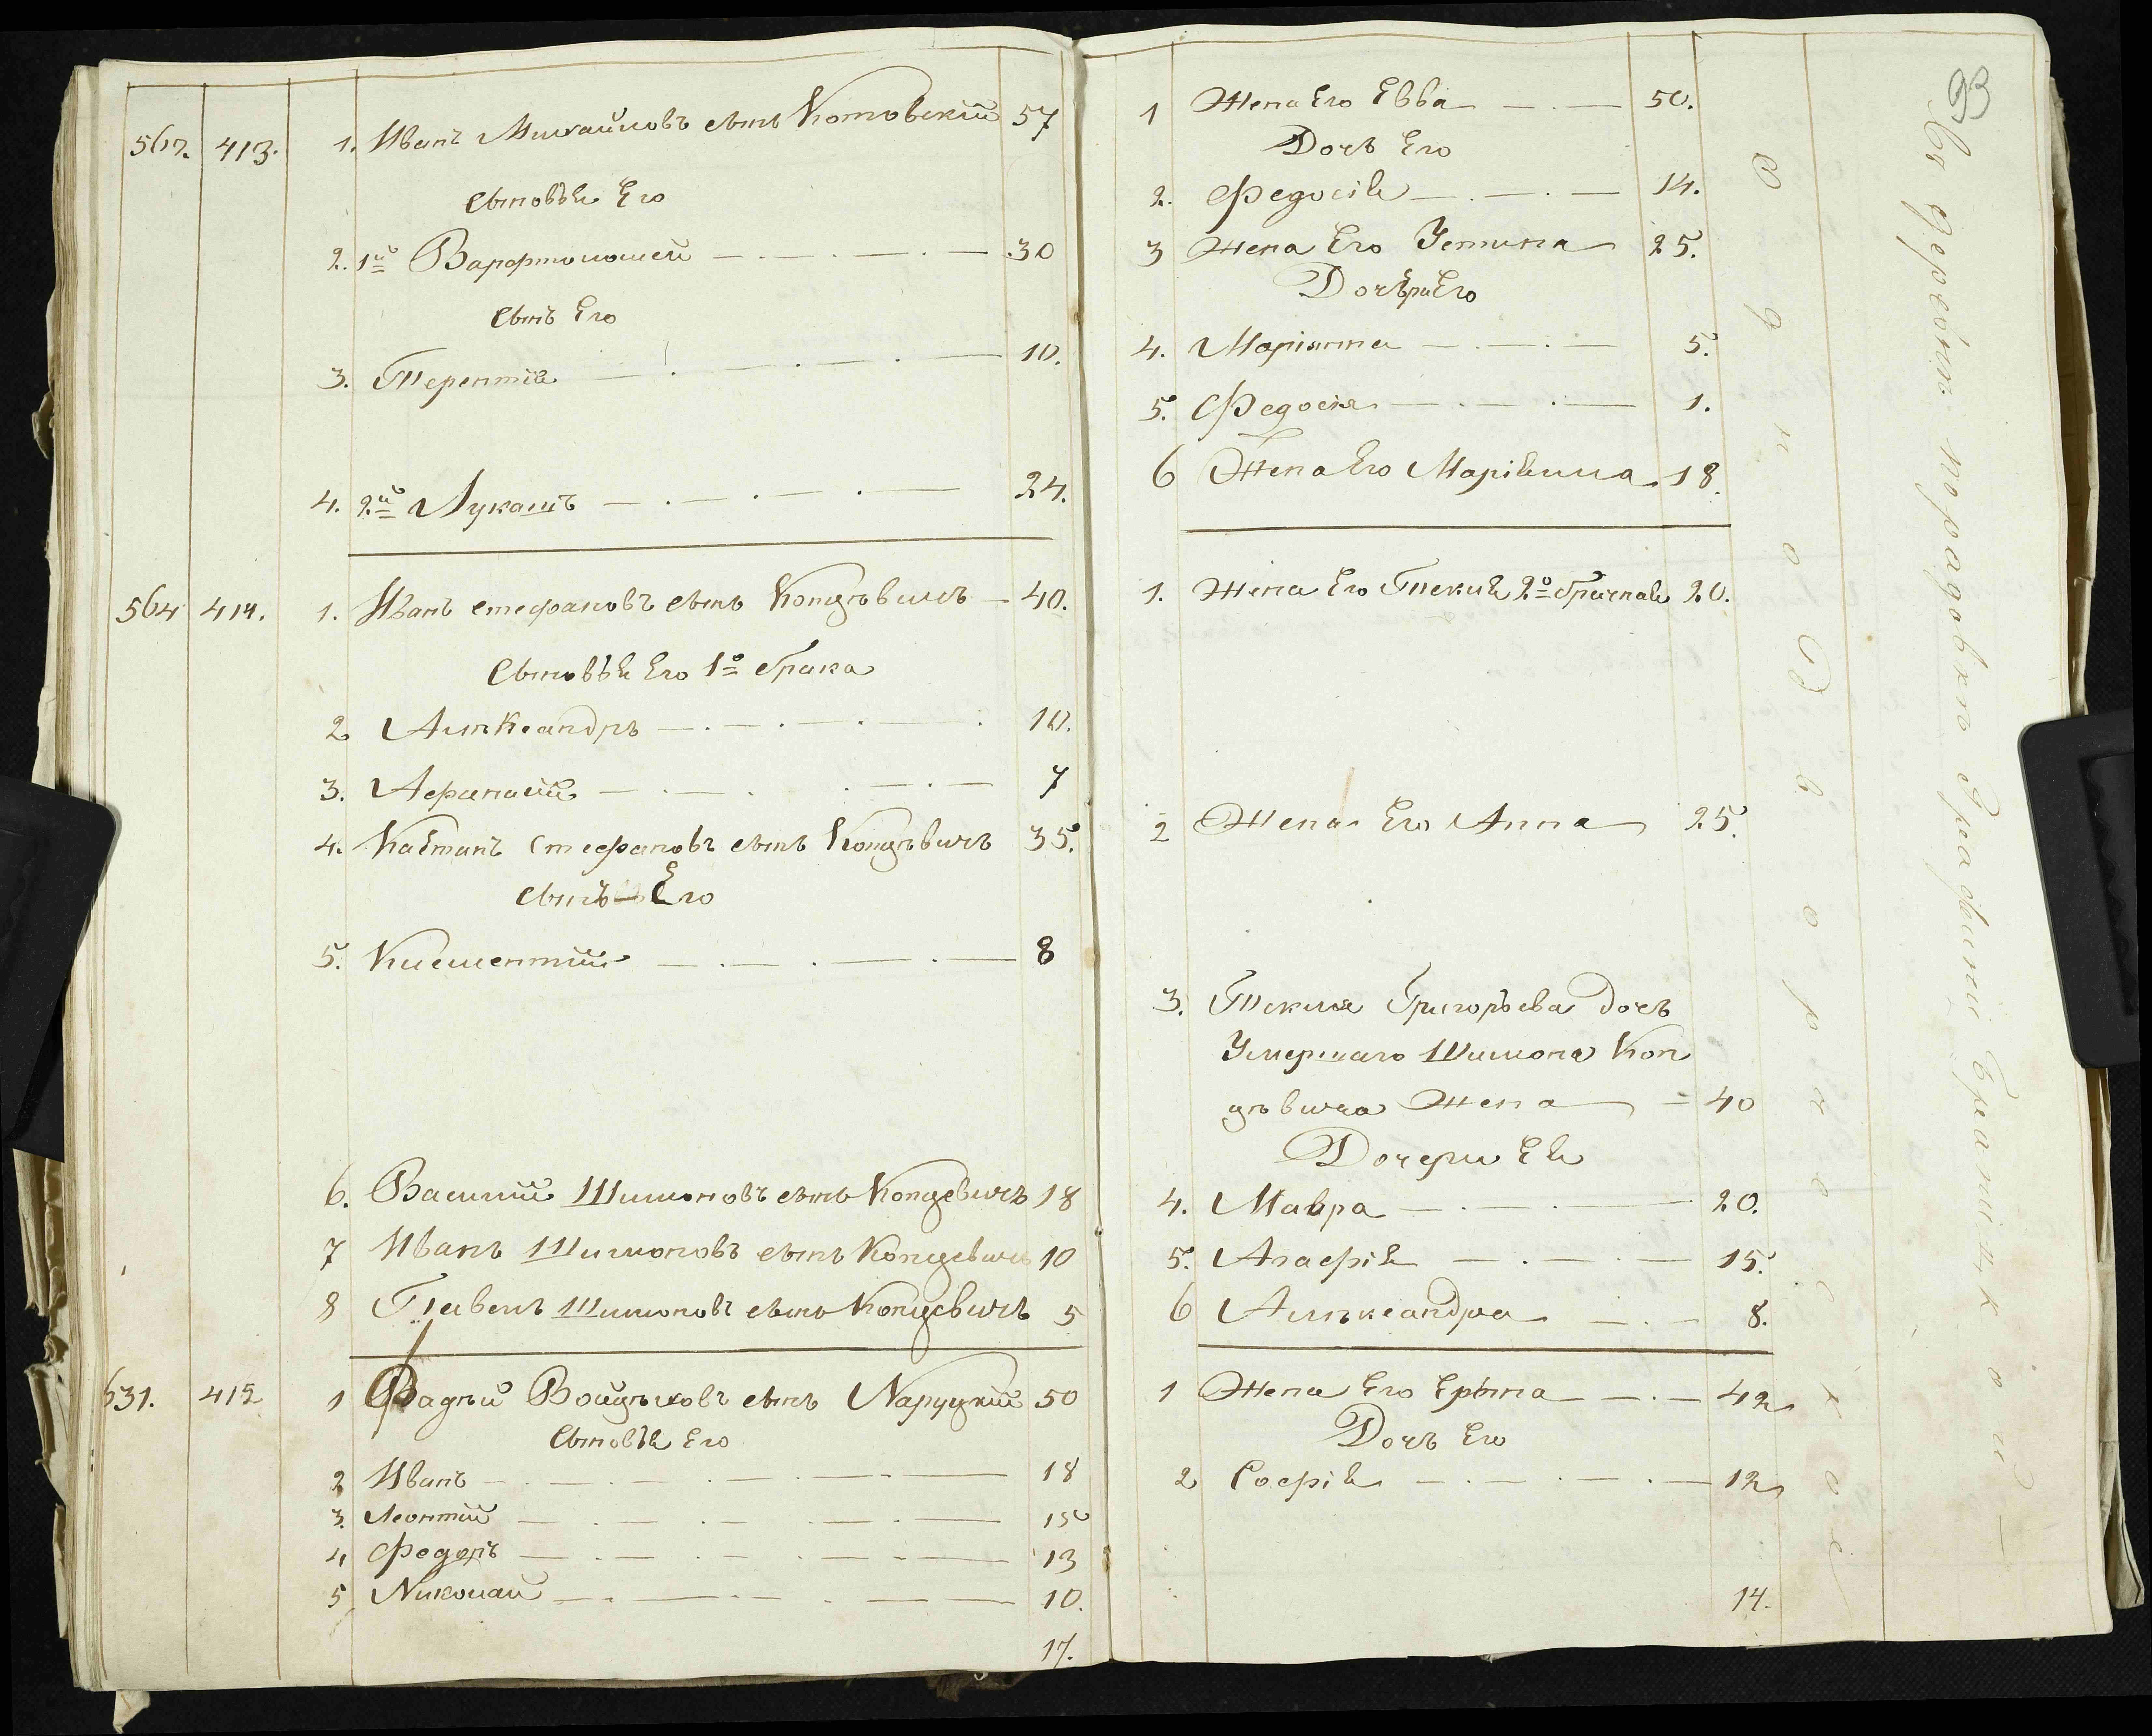 567. 413. 1. Иванъ Михайловъ сынъ Котовскій 57
Сыновья Его
2. 1й Варфоломей 30
Сынъ Его
3. Терентій 10.
4. 2й Лукашъ 24.
564 414. 1. Иванъ Стефановъ сынъ Концѣвичъ 40.
Сыновья Его 1о брака
2 Алѣксандръ 10.
3. Афанасій 7
4. Каетанъ Стефановъ сынъ Концѣвичъ 35.
сынъ Его
5. Клементій 8
6. Василій Шимоновъ сынъ Концевичъ 18
7 Иванъ Шимоновъ сынъ Концевичъ 10
8 Павелъ Шимоновъ сынъ Концевичъ 5
631. 415 1 Фадѣй Войцѣховъ сынъ Наруцкій 50
Сыновья Его
2 Иванъ 18
3. Леонтій 15
4 Федоръ 13
5 Николай 10.
17.
93
1 Жена Его Евва 50.
Дочь Его
2. Федосія 14.
3 Жена Его Устина 25.
Дочѣри Его
4. Маріянна 5.
5. Федосія 1.
6 Жена Его Маріянна 18.
1. Жена Его Текля 2о брачная 20.
2 Жена Его Анна 25.
3. Текля Григорьева дочь
Умершаго Шимона Кон
цѣвича Жена 40
Дочери Ея
4. Мавра 20.
5. Агафія 15.
6 Алѣксандра 8.
1 Жена Его Ерына 42
Дочь Его
2 Софія 12
14.